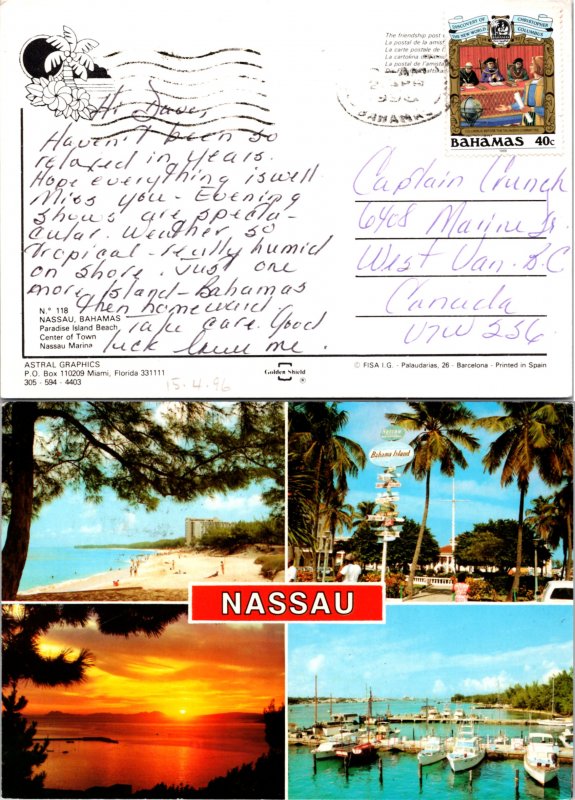 The friendship post
La postal de la amist
La carte postale de l
La cartolina dell'am
La postal de l'amista
BAHAMAS
DISCOVERY OF
THE NEW WORLD
CHRISTOPHER
COLUMBUS
BAHAMAS 40c
Hi Dave,
Haven't been so
relaxed in years.
Hope everything is well.
Miss you - Evening
shows are specta-
cular. Weather so
tropical - really humid
on shore. Just one
more Island - Bahamas
then homeward.
Take care. Good
luck love me.
Captain Crunch
6408 Marine Dr.
West Van. B.C
Canada
V7W 2S6
N.° 118
NASSAU, BAHAMAS
Paradise Island Beach
Center of Town
Nassau Marina
ASTRAL GRAPHICS
P.O. Box 110209 Miami, Florida 331111
305 - 594 - 4403
15.4.96
Golden Shield
®
© FISA I.G. - Palaudarias, 26 - Barcelona - Printed in Spain
Bahama Island
NASSAU